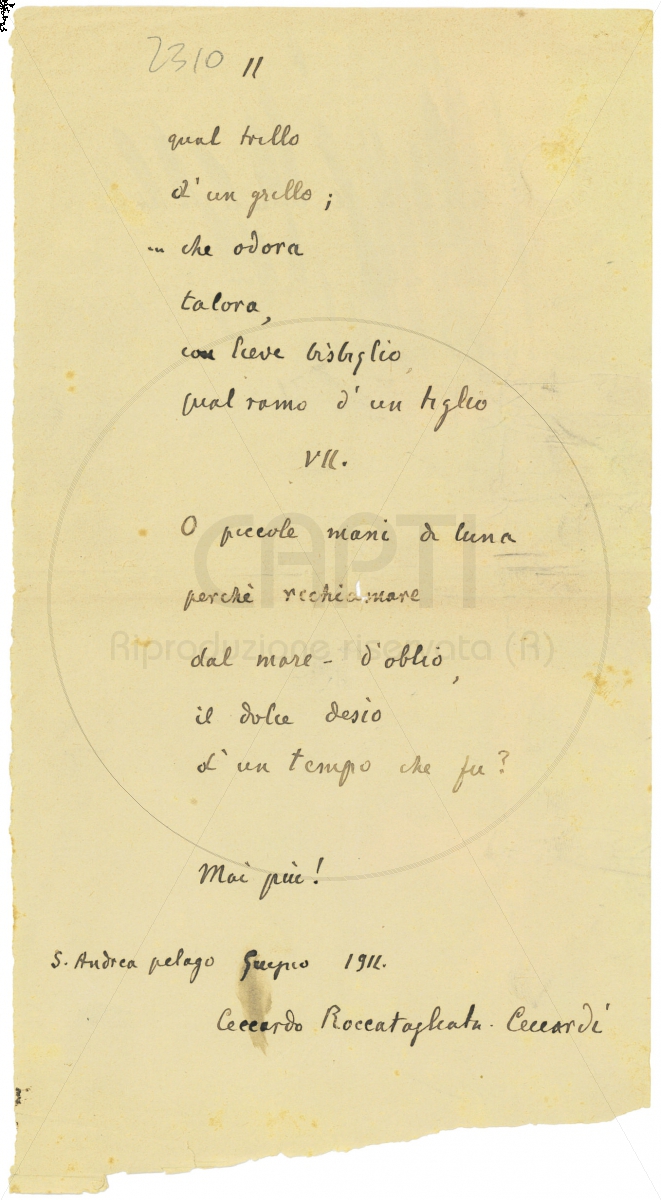 2310 11
qual trillo
d'un grillo;
... che odora
talora,
con lieve bisbiglio,
qual ramo d'un tiglio
VII.
O piccole mani di luna
perchè richiamare
dal mare - d'oblio,
il dolce desio
d'un tempo che fu?
Mai più!
S. Andrea pelago Giugno 1911.
Ceccardo Roccatagliata - Ceccardi
CAPTI
Riproduzione riservata (R)